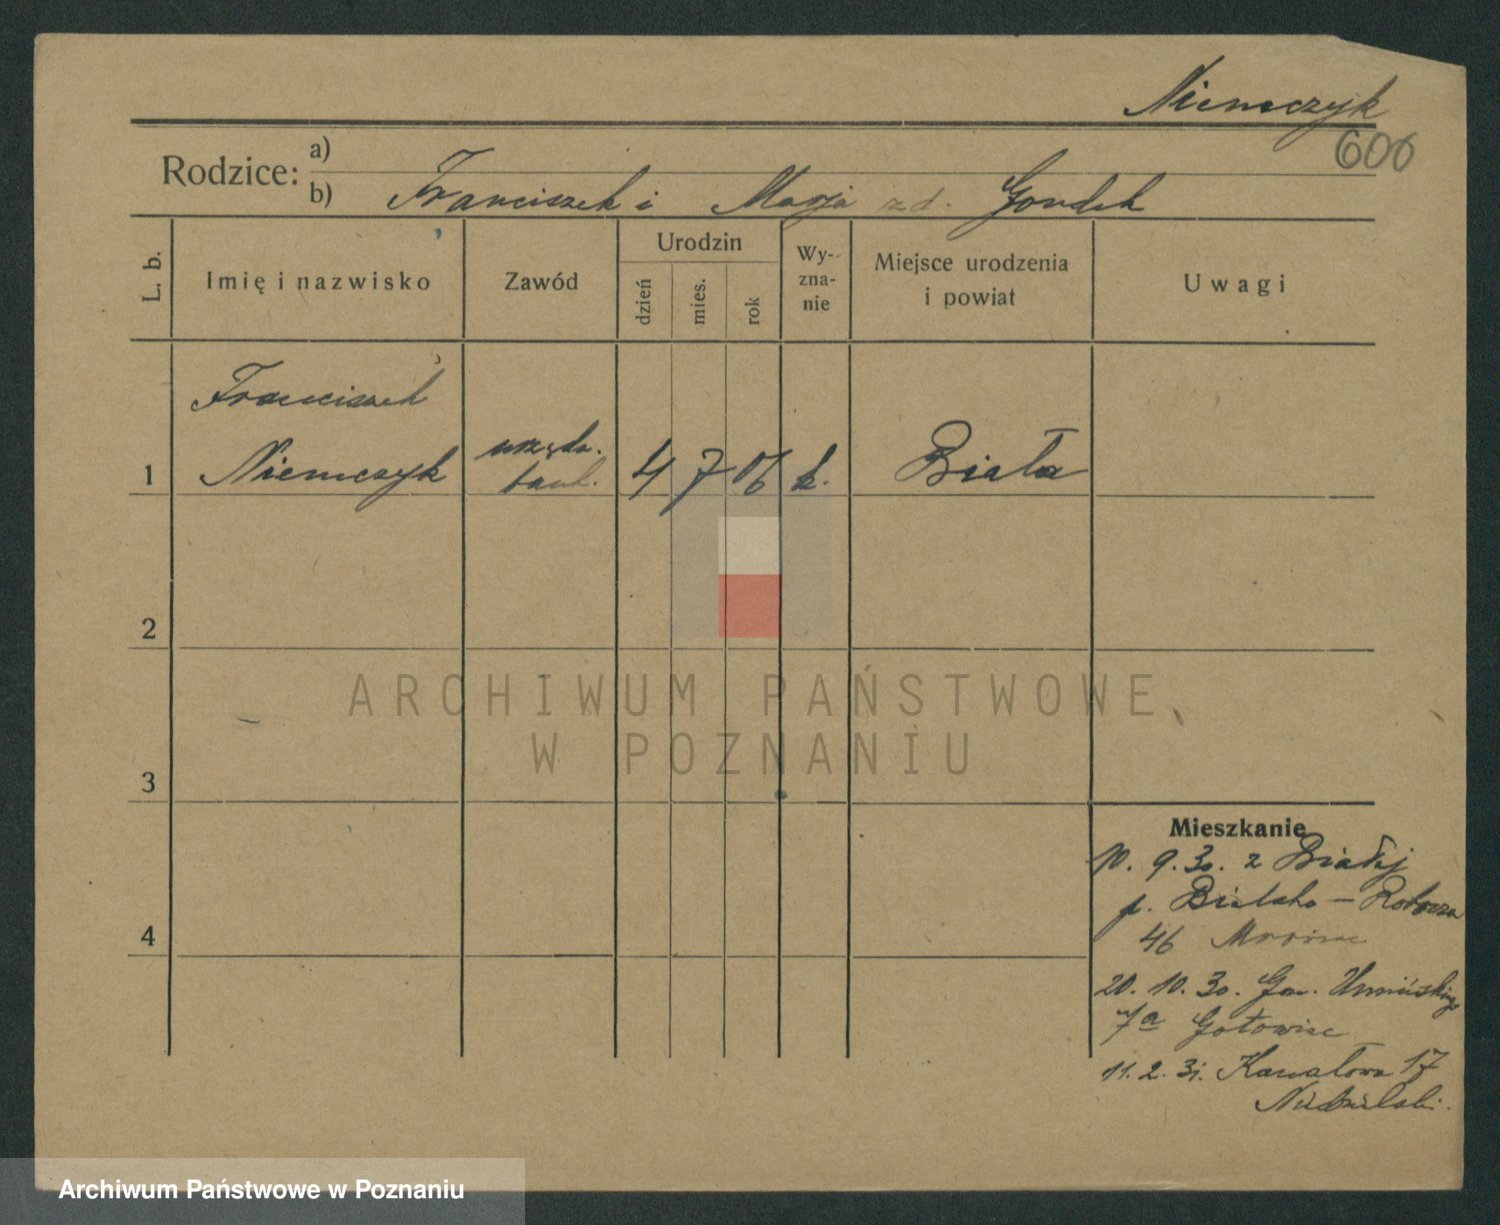 Niemczyk
606
Rodzice: a)
b) Franciszek i Marja zd. Gondek
L. b.
Imię i nazwisko
Zawód
Urodzin
dzień
mies.
rok
Wy-
zna-
nie
Miejsce urodzenia
i powiat
Uwagi
Franciszek
1 Niemczyk urzędn. bank. 4 7 06 k. Biała
2
3
4
Mieszkanie
10. 9. 30. z Białej
p. Bielsko –
46
20. 10. 30. Gen. Umińskiego
7a
11. 2. 31. Kanałowa 17
Niedzielski.
ARCHIWUM PAŃSTWOWE
W POZNANIU
Archiwum Państwowe w Poznaniu